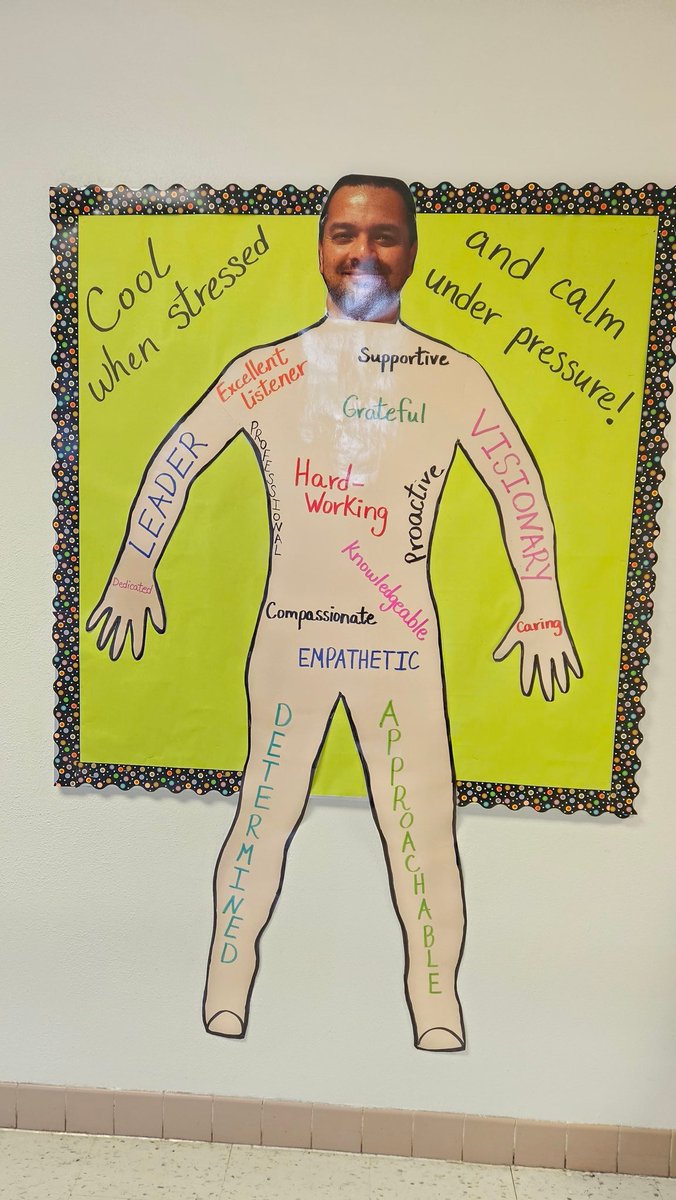 Cool
when stressed
and calm
under pressure!
Excellent
listener
Supportive
Grateful
LEADER
PROFESSIONAL
Hard-
Working
Proactive
VISIONARY
Dedicated
Knowledgeable
Compassionate
Caring
EMPATHETIC
DETERMINED
APPROACHABLE